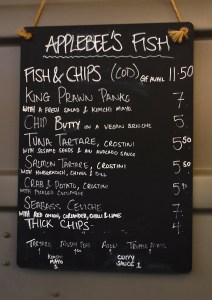 APPLEBEE'S FISH
FISH & CHIPS (COD) GF AVAIL 11.50
KING PRAWN PANKO 7
WITH A FRESH SALAD & KIMCHI MAYO
CHIP BUTTY IN A VEGAN BRIOCHE 5
TUNA TARTARE, CROSTINI 5.50
WITH SESAME SEEDS & AN AVOCADO SAUCE
SALMON TARTARE, CROSTINI 5.50
WITH HORSERADISH, & DILL
CRAB & POTATO, CROSTINI 5
WITH PICKLED
SEABASS CEVICHE 7
WITH RED ONION, CORIANDER, CHILLI & LIME
THICK CHIPS 4
TARTARE MUSHY PEAS AIOLI TRUFFLE MAYO
KIMCHI MAYO CURRY SAUCE 1